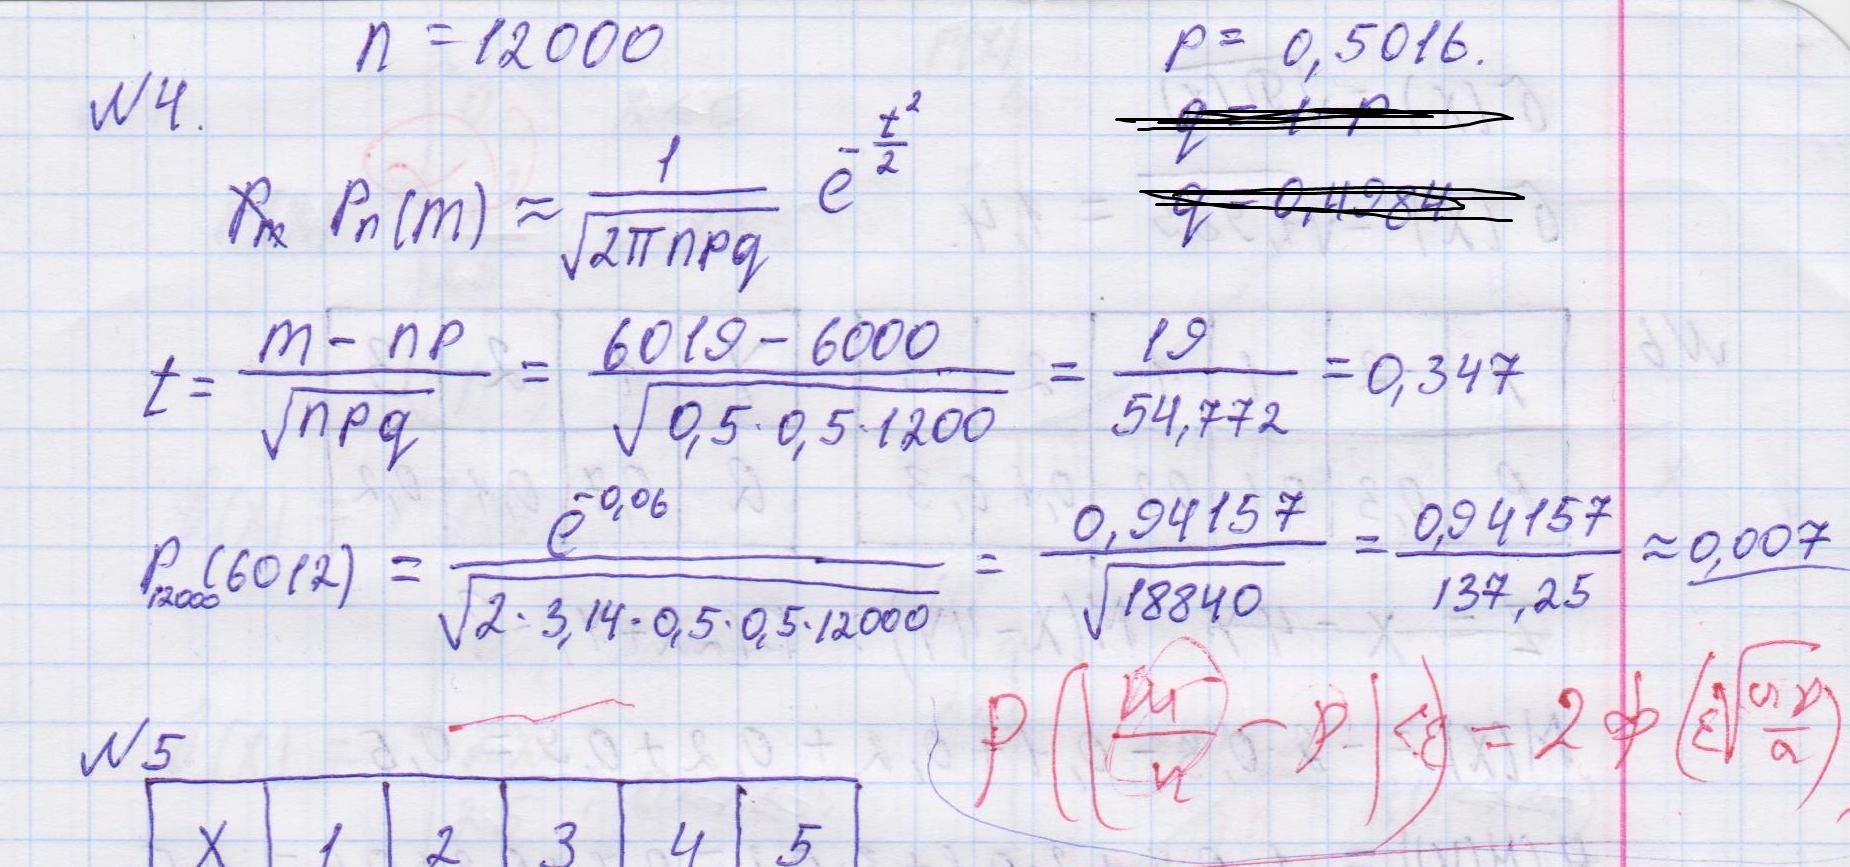 n = 12000 p = 0,5016.
N4.
Pn(m) ≈ 1/√(2πnpq) e^(-t²/2)
t = (m - np)/√(npq) = (6019 - 6000)/√(0,5·0,5·1200) = 19/54,772 = 0,347
P12000(6012) = e^(-0,06)/√(2·3,14·0,5·0,5·12000) = 0,94157/√18840 = 0,94157/137,25 ≈ 0,007
P(|m/n - p| < ε) = 2Ф(ε√
N5
X 1 2 3 4 5